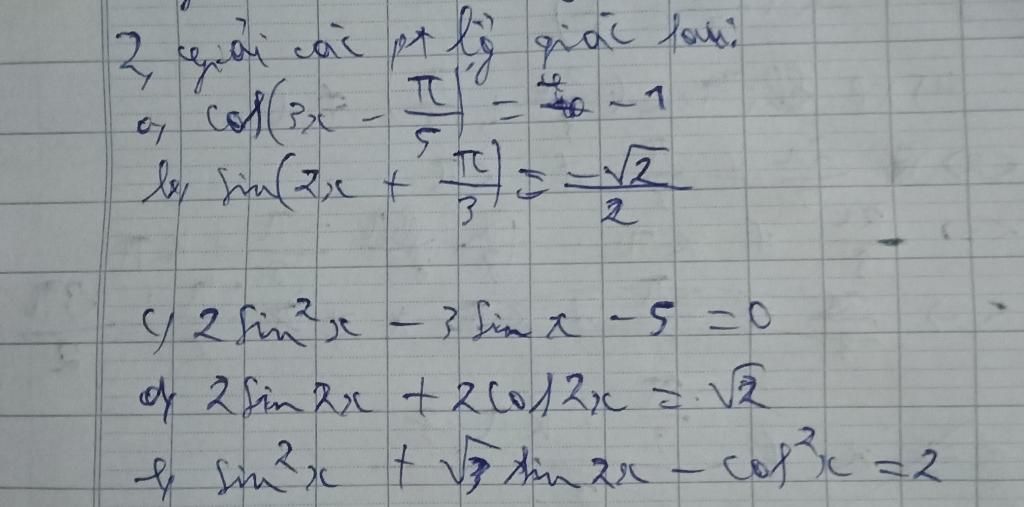 2, giải các pt lg giác sau:
a, cos(3x - π/5) = -1
b, sin(2x + π/3) = -√2/2
c, 2sin²x - 3sinx - 5 = 0
d, 2sin2x + 2cos2x = √2
e, sin²x + √3 sin2x - cos²x = 2